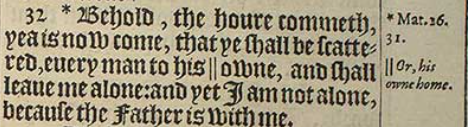 32 * Behold, the houre commeth,
yea is now come, that ye shall be scatte-
red, euery man to his || owne, and shall
leaue me alone: and yet I am not alone,
because the Father is with me.
* Mat. 26.
31.
|| Or, his
owne home.